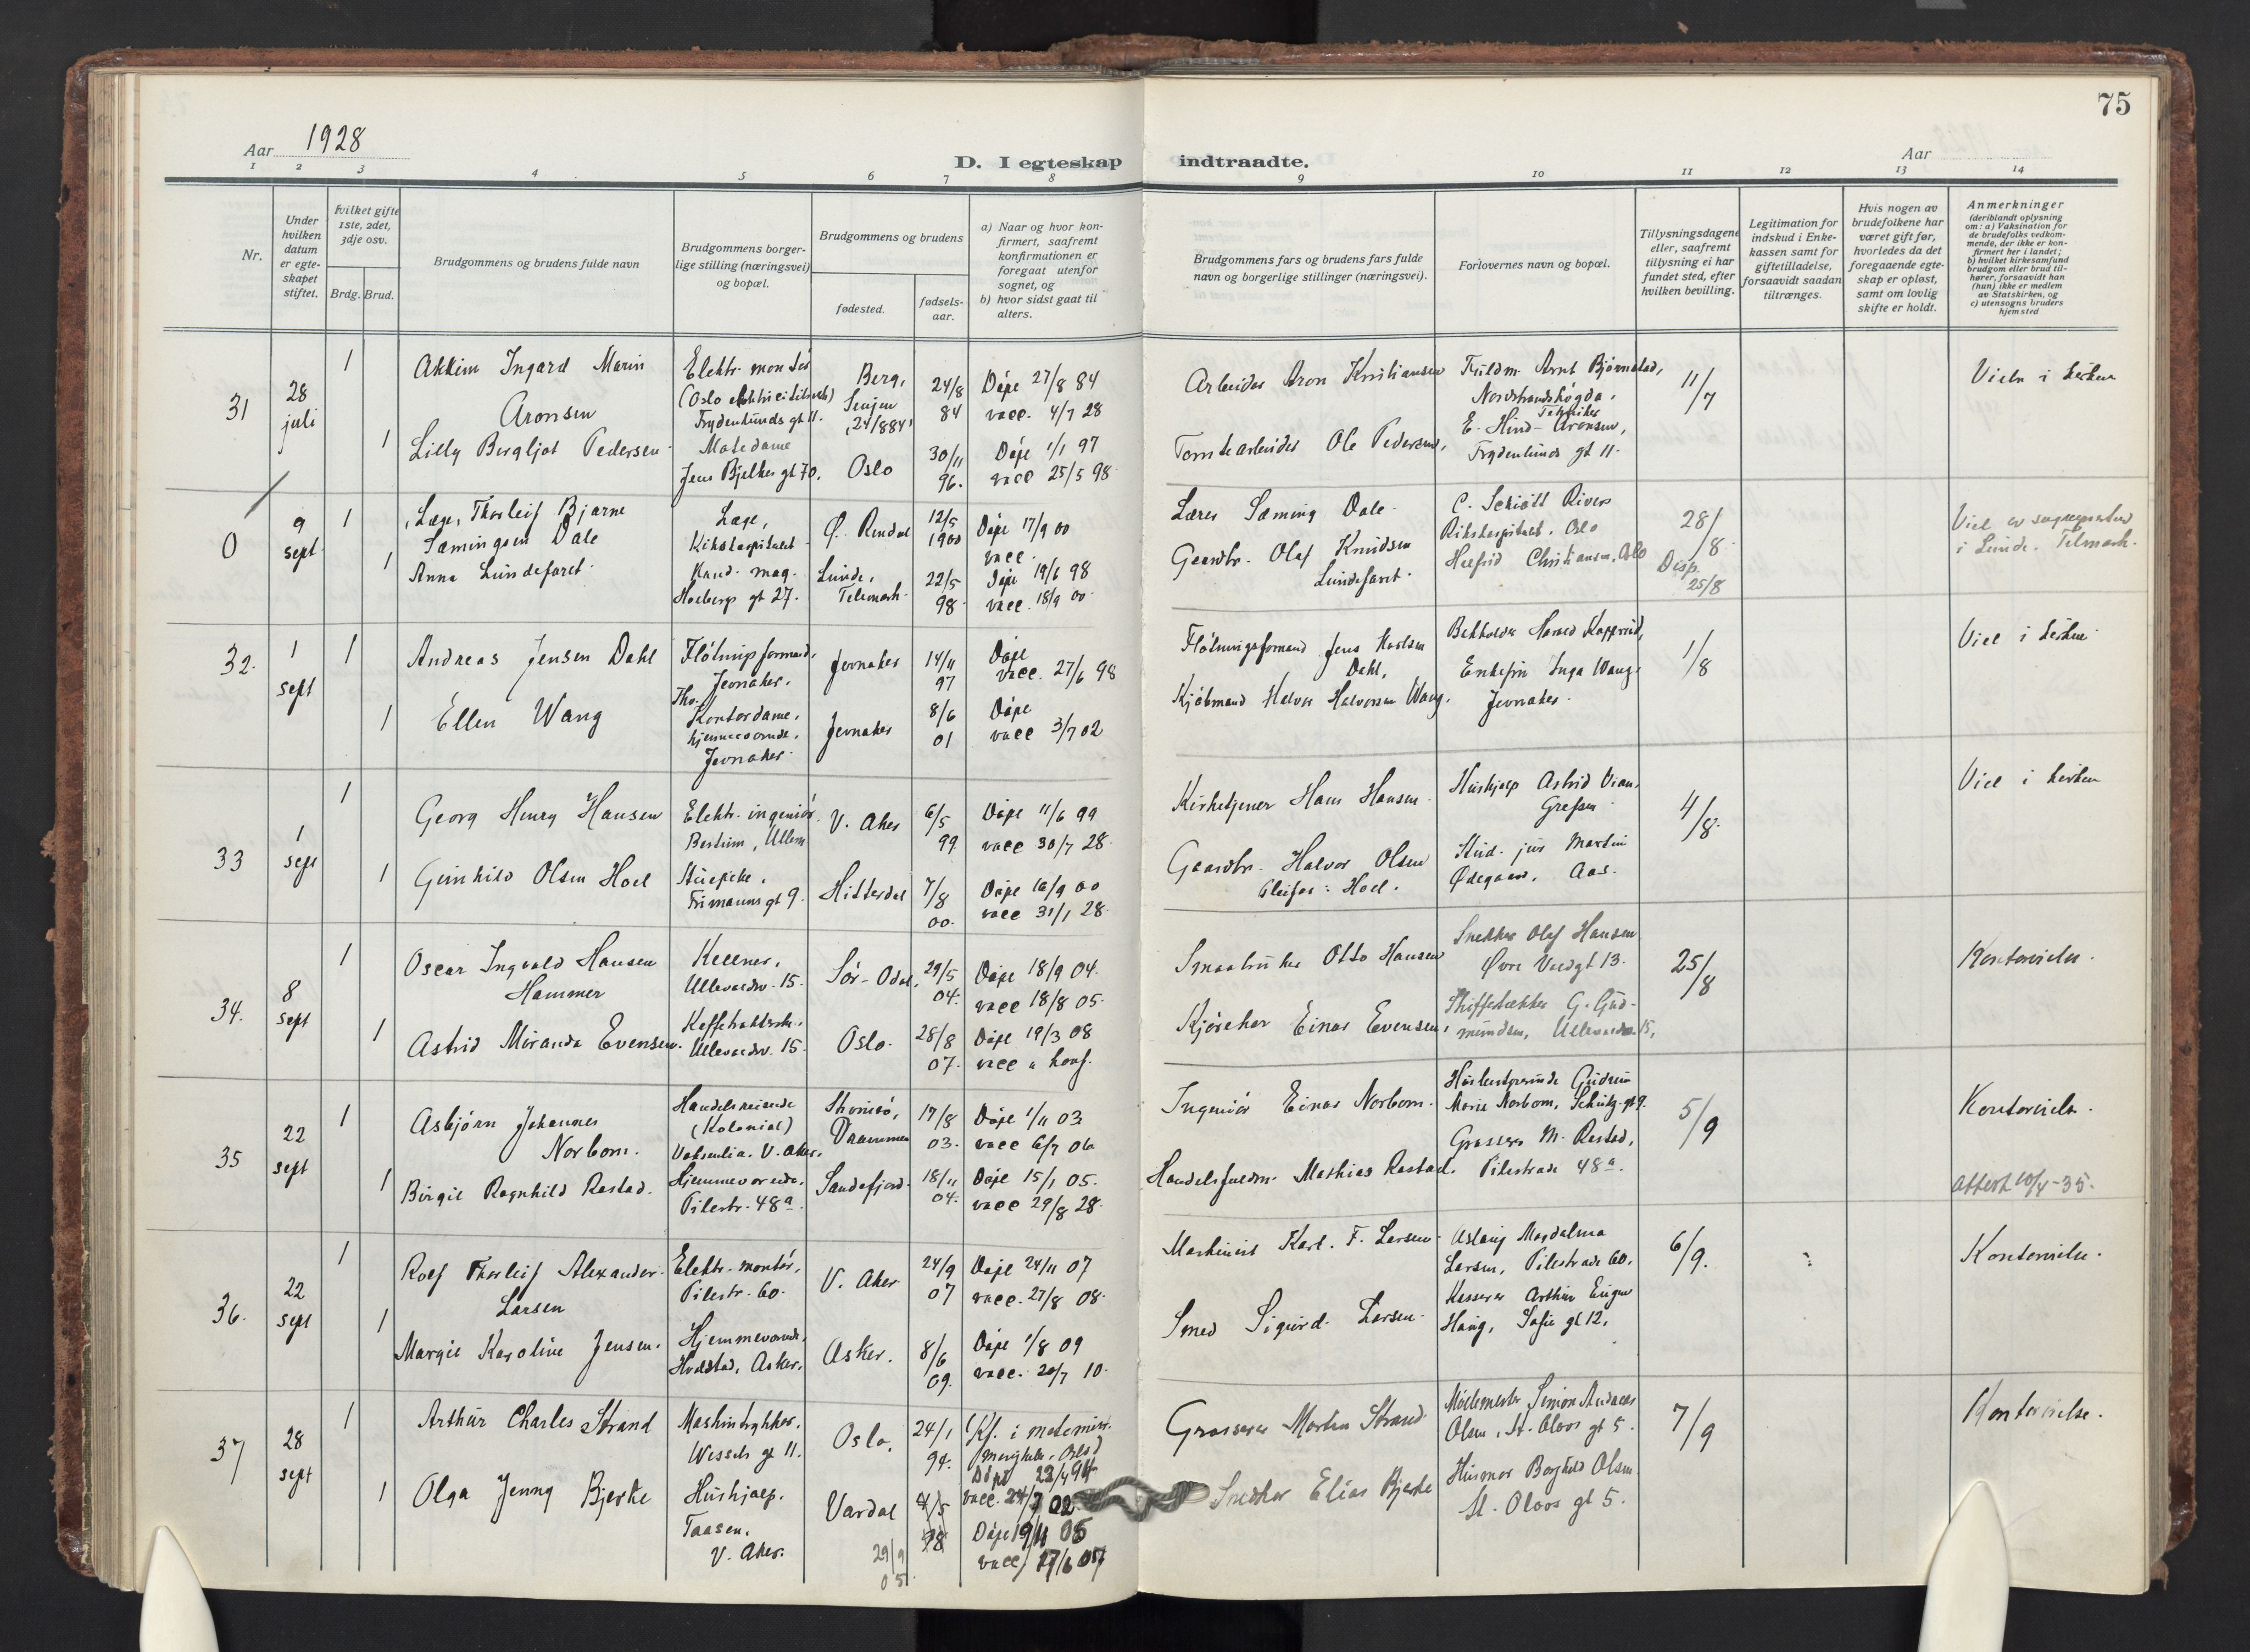 75
Aar 1928
D. I egteskap indtraadte.
Aar
1 2 3 4 5 6 7 8 9 10 11 12 13 14
Nr.
Under hvilken datum er egteskapet stiftet.
hvilket gifte 1ste, 2det, 3dje osv.
Brdg. Brud.
Brudgommens og brudens fulde navn
Brudgommens borgerlige stilling (næringsvei) og bopæl.
Brudgommens og brudens
fødested.
fødselsaar.
a) Naar og hvor konfirmert, saafremt konfirmationen er foregaat utenfor sognet, og
b) hvor sidst gaat til alters.
Brudgommens fars og brudens fars fulde navn og borgerlige stillinger (næringsvei).
Forlovernes navn og bopæl.
Tillysningsdagene eller, saafremt tillysning ei har fundet sted, efter hvilken bevilling.
Legitimation for indskud i Enkekassen samt for giftetilladelse, forsaavidt saadan tiltrænges.
Hvis nogen av brudefolkene har været gift før, hvorledes da det foregaaende egteskap er opløst, samt om lovlig skifte er holdt.
Anmerkninger (deriblandt oplysning om: a) Vaksination for de brudefolks vedkommende, der ikke er konfirmert her i landet; b) hvilket kirkesamfund brudgom eller brud tilhører, forsaavidt han (hun) ikke er medlem av Statskirken, og c) utensogns bruders hjemsted
31
28 juli
1
Akkim Ingard Marin
Aronsen
Elektr. montør
Frydenlunds gt 11.
Berg,
Senjen
24/8 84
Døpt 27/8 84
vacc. 4/7 28
Arbeider Aron Kristiansen
Arnt Bjørnstad,
Nordstrandshøgda.
11/7
Viet i kirken
1
Lilly Bergljot Pedersen
Jens Bjelkes gt 70.
Oslo
30/11 96.
Døpt 1/1 97
vacc 25/5 98
Tomtearbeider Ole Pedersen,
Tekniker
E. Hind-Aronsen,
Frydenlunds gt 11.
0
9 sept
1
Læge, Thorleif Bjarne
Sæmingsen Dale
Læge,
Rikshospitalet
Ø. Rendal
12/5 1900
Døpt 17/9 00
vacc.
Lærer Sæming Dale
Rikshospitalet, Oslo
28/8
Disp. 25/8
i Lunde. Telmark.
1
Anna Lundefaret
Kand. mag.
Holbergs gt 27.
Lunde,
Telemark
22/5 98
Døpt 19/6 98
vacc. 18/9 00
Gaardbr. Olaf Knudsen
Lundefaret
Christiansen, Oslo
32.
1 sept
1
Andreas Jensen Dahl
Fløtningsformand,
Jevnaker.
Jevnaker
14/11 97
Døpt
vacc. 27/6 98
Fløtningsformand Jens Karlsen
Dahl,
1/8
Viet i kirken
1
Ellen Wang
Kontordame,
hjemmeværende,
Jevnaker
Jevnaker
8/6 01
Døpt
vacc 3/7 02
Kjøbmand Halvor Halvorsen Wang.
Enkefru Inga Wang,
Jevnaker
33
1 sept
1
Georg Henry Hansen
Elektr. ingeniør.
Bestum, Ullern
V. Aker
6/5 99
Døpt 11/6 99
vacc 30/7 28
Kirketjener Hans Hansen
Hushjelp Astrid
Grefsen
4/8.
Viet i kirken
1
Gunhild Olsen Hoel
Stuepike,
Frimanns gt 9
Hitterdal
7/8 00.
Døpt 16/9 00
vacc 31/1 28
Gaardbr. Halvor Olsen
Hoel.
Stud. jur Martin
Ødegaard, Aas.
34.
8 sept
1
Oscar Ingvald Hansen
Hammer
Kellner,
Ullevaalsv. 15.
Sør-Odal,
29/5 04.
Døpt 18/9 04.
vacc 18/8 05.
Smaabruker Otto Hansen
Snekker Olaf Hansen
Øvre Voldgt 13.
25/8
Kontorvielse.
1
Astrid Miranda Evensen.
Ullevaalsv. 15.
Oslo.
28/8 07.
Døpt 19/3 08
vacc u konf.
Kjørekar Einar Evensen,
G. Gudmundsen, Ullevaalsv. 15,
35
22 sept
1
Asbjørn Johannes
Norbom.
Handelsreisende
(Kolonial)
Voksenlia. V. Aker.
Strømsø,
Drammen
17/8 03.
Døpt 1/11 03
vacc 6/7 06
Ingeniør Einar Norbom.
Gudrun
Marie Norbom, Schultz gt 9.
5/9
Kontorvielse.
1
Birgit Ragnhild Rastad.
Hjemmeværende,
Pilestr. 48a.
Sandefjord.
18/11 04.
Døpt 15/1 05.
vacc 29/8 28.
Mathias Rastad.
Grosserer M. Rastad,
Pilestræde 48a.
Attest 10/4-35.
36.
22 sept
1
Rolf Thorleif Alexander
Larsen
Elektr. montør,
Pilestr. 60.
V. Aker
24/9 07
Døpt 24/11 07
vacc. 27/8 08.
Maskinist Karl. F. Larsen
Aslaug Magdalena
Larsen, Pilestræde 60.
6/9.
Kontorvielse.
1
Margit Karoline Jensen.
Hjemmeværende,
Hvalstad, Asker.
Asker.
8/6 09.
Døpt 1/8 09
vacc. 20/7 10.
Smed Sigurd Larsen
Kasserer Arthur Eugen
Haug, Sofies gt 12.
37
28 sept
1
Arthur Charles Strand
Maskintrykker,
Wessels gt 11.
Oslo.
24/1 94.
Døpt 22/4 94
vacc. 24/7 02.
Grosserer Morten Strand
Møllemester Simon Andreas
Olsen, St. Olavs gt 5.
7/9
Kontorvielse.
1
Olga Jenny Bjerke
Hushjælp.
Taasen.
V. Aker.
Vardal
29/9 05
Døpt 19/11 05
vacc 17/6 07
Snekker Elias Bjerke
Husmor Borghild Olsen
St. Olavs gt 5.